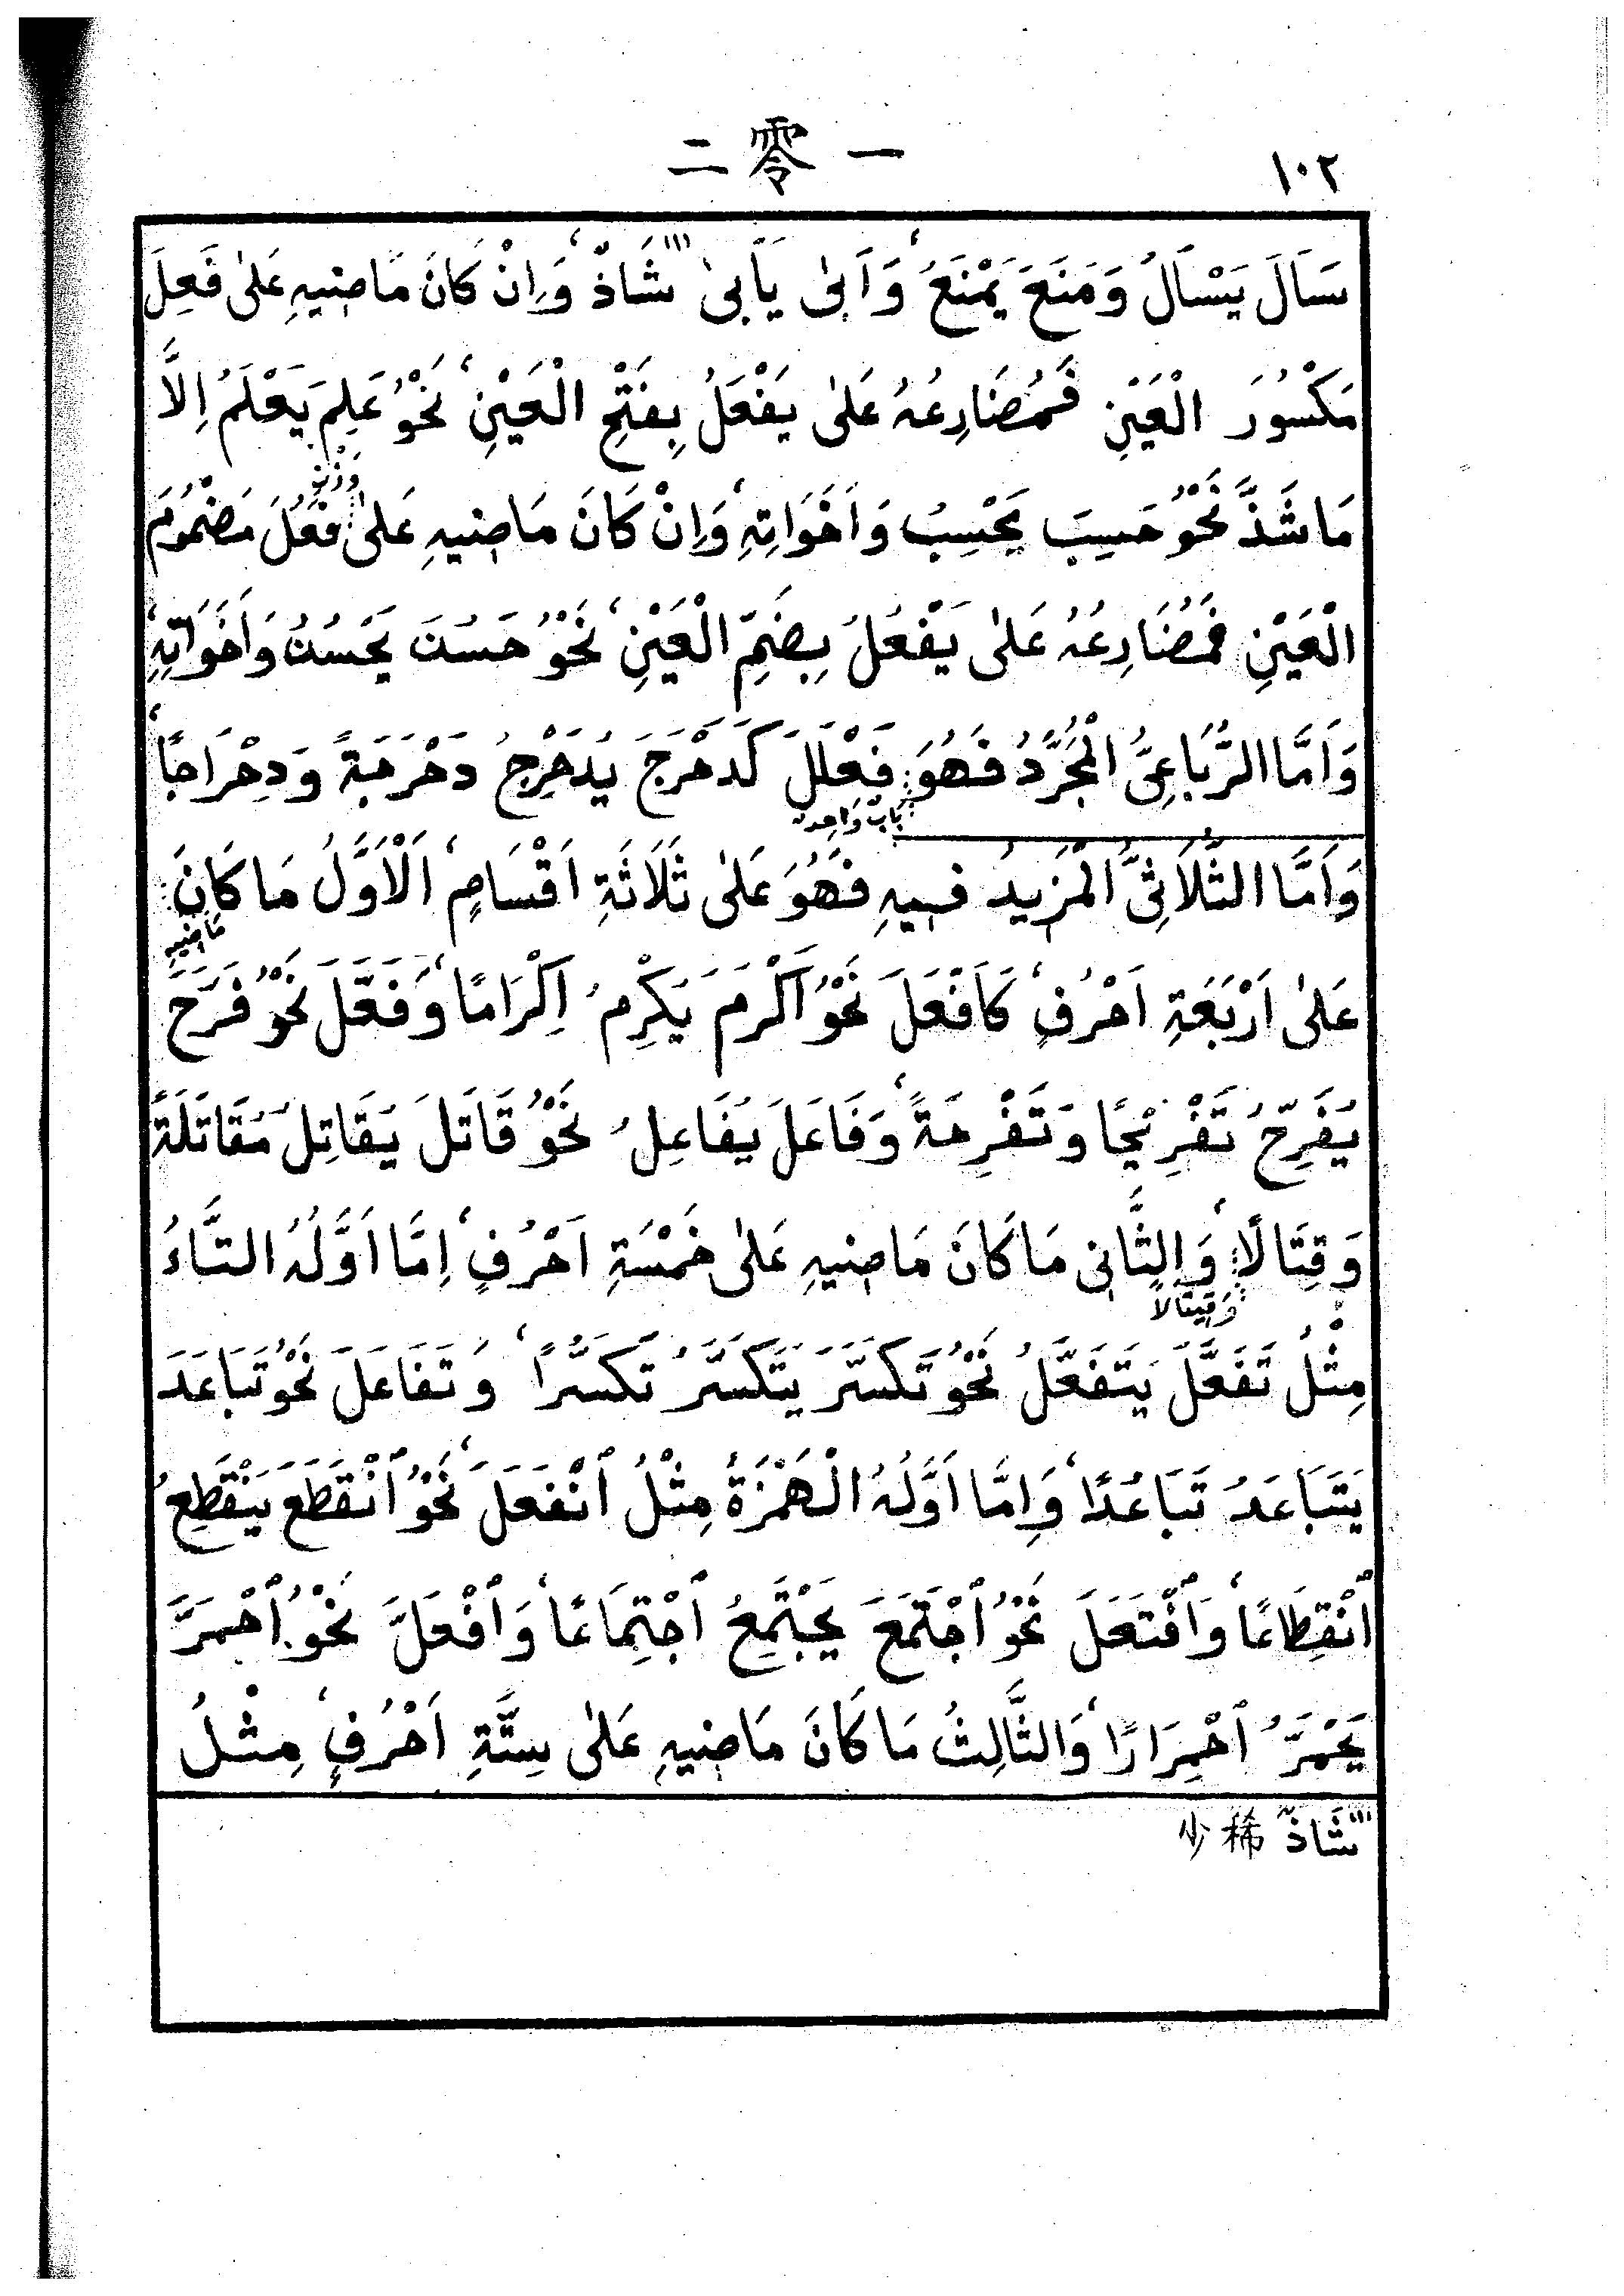 ١٠٢
一零二
سَاَلَ يَسْاَلُ وَمَنَعَ يَمْنَعُ، وَاَبىٰ يَأبىٰ (١)شَاذٌّ، وَاِنْ كَانَ مَاضِيهِ عَلىٰ فَعِلَ
مَكْسُورَ الْعَيْنِ فَمُضَارِعُهُ عَلىٰ يَفْعَلُ بِفَتْحِ الْعَيْنِ، نَحْوُ عَلِمَ يَعْلَمُ اِلَّا
وَزْنِ
مَا شَذَّ نَحْوُ حَسِبَ يَحْسِبُ وَاَخَوَاتِهِ، وَاِنْ كَانَ مَاضِيهِ عَلىٰ فَعُلَ مَضْمُومَ
الْعَيْنِ فَمُضَارِعُهُ عَلىٰ يَفْعُلُ بِضَمِّ الْعَيْنِ، نَحْوُ حَسُنَ يَحْسُنُ وَاَخَوَاتِهِ،
وَاَمَّا الرُّبَاعِىُّ الْمُجَرَّدُ فَهُوَ فَعْلَلَ كَدَحْرَجَ يُدَحْرِجُ دَحْرَجَةً وَدِحْرَاجًا،
بَابٌ وَاحِدٌ
وَاَمَّا الثُّلَاثِىُّ الْمَزِيدُ فِيهِ فَهُوَ عَلىٰ ثَلَاثَةِ اَقْسَامٍ، اَلْاَوَّلُ مَا كَانَ
مَاضِيهِ
عَلىٰ اَرْبَعَةِ اَحْرُفٍ، كَاَفْعَلَ نَحْوُ اَكْرَمَ يُكْرِمُ اِكْرَامًا، وَفَعَّلَ نَحْوُ فَرَّحَ
يُفَرِّحُ تَفْرِيْحًا وَتَفْرِحَةً، وَفَاعَلَ يُفَاعِلُ نَحْوُ قَاتَلَ يُقَاتِلُ مُقَاتَلَةً
وَقِتَالًا، وَالثَّانِى مَا كَانَ مَاضِيهِ عَلىٰ خَمْسَةِ اَحْرُفٍ، اِمَّا اَوَّلُهُ التَّاءُ
وَقِيتَالًا
مِثْلُ تَفَعَّلَ يَتَفَعَّلُ نَحْوُ تَكَسَّرَ يَتَكَسَّرُ تَكَسُّرًا، وَتَفَاعَلَ نَحْوُ تَبَاعَدَ
يَتَبَاعَدُ تَبَاعُدًا، وَاِمَّا اَوَّلُهُ الْهَمْزَةُ مِثْلُ ٱنْفَعَلَ، نَحْوُ ٱنْقَطَعَ يَنْقَطِعُ
ٱنْقِطَاعًا، وَٱفْتَعَلَ نَحْوُ ٱجْتَمَعَ يَجْتَمِعُ ٱجْتِمَاعًا، وَٱفْعَلَّ نَحْوُ ٱحْمَرَّ
يَحْمَرُّ ٱحْمِرَارًا، وَالثَّالِثُ مَا كَانَ مَاضِيهِ عَلىٰ سِتَّةِ اَحْرُفٍ، مِثْلُ
(١)شَاذٌّ 稀少